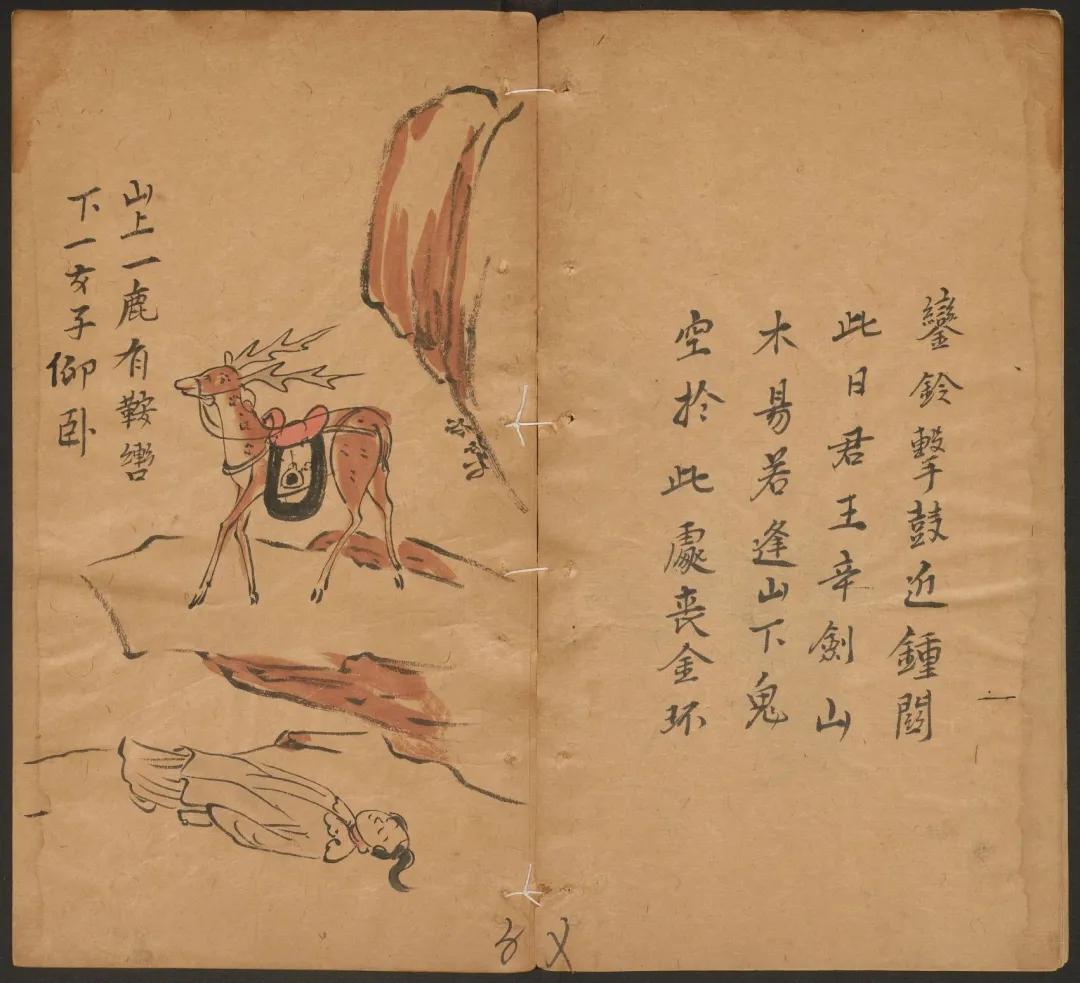 鑾鈴擊鼓近鍾閣
此日君王辛劍山
木易若逢山下鬼
空於此處喪金环
山上一鹿有鞍轡
下一女子仰卧